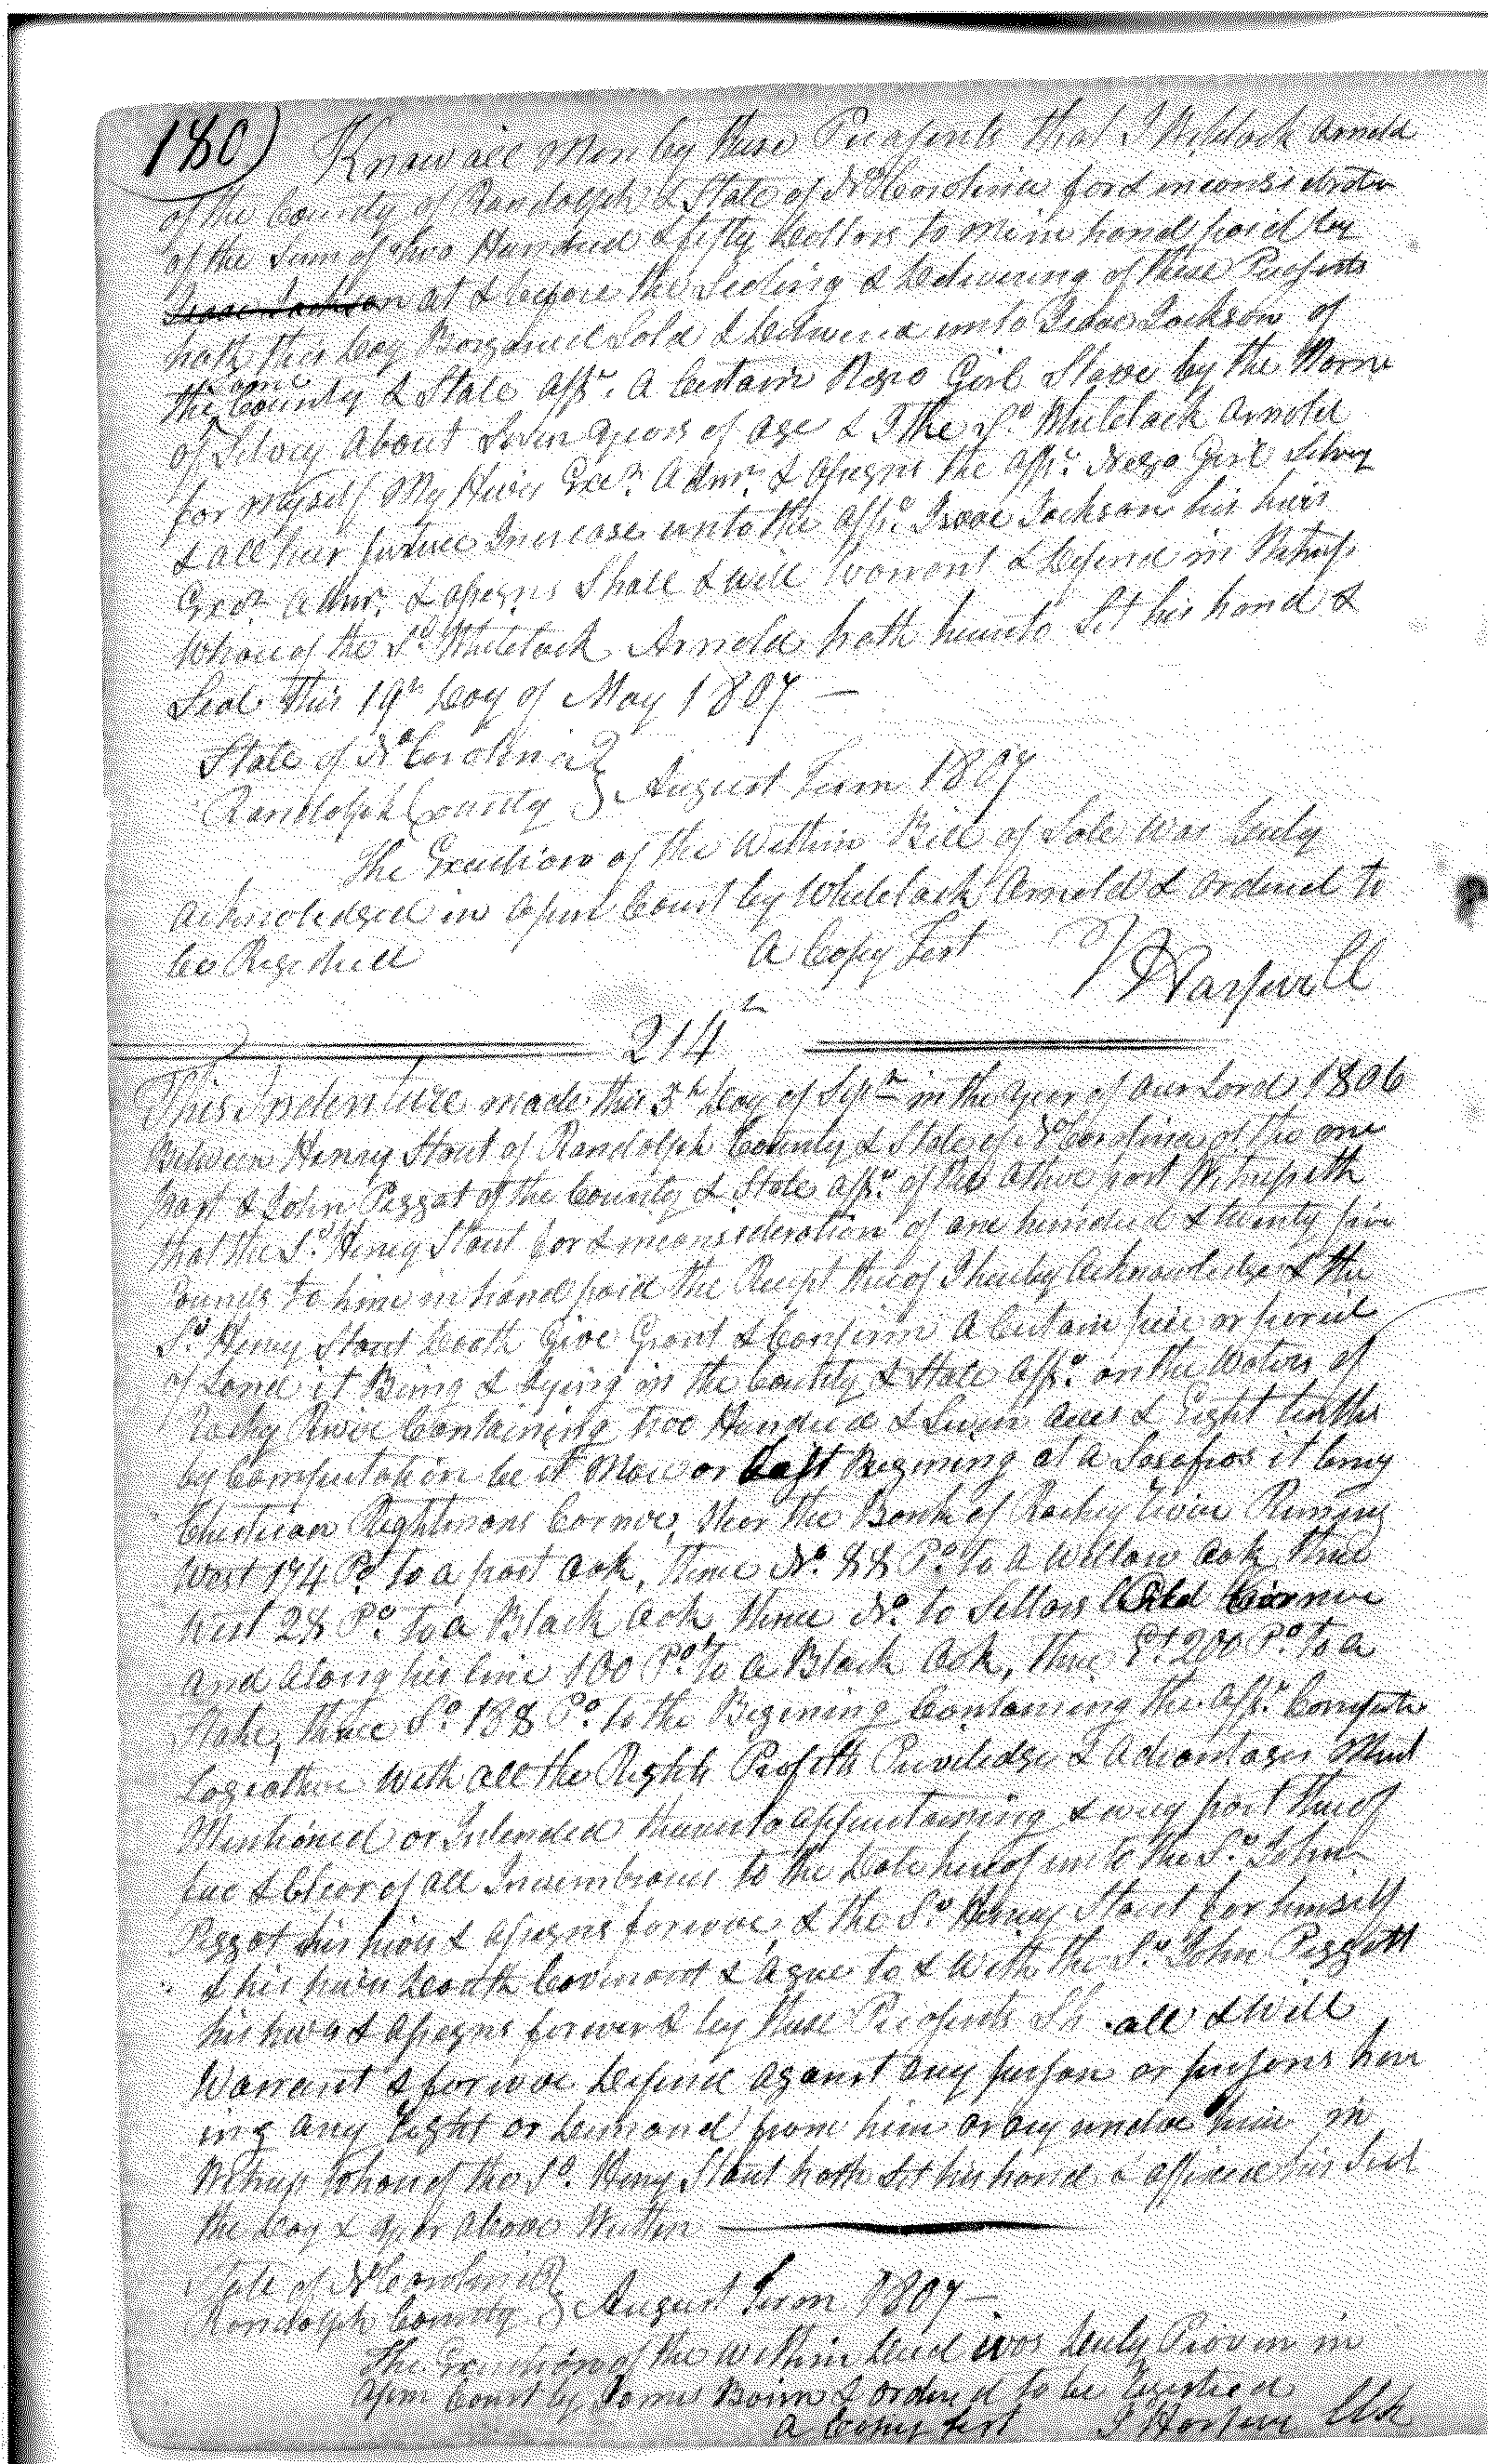 180) Know all Men by these Presents that I Whitlock Arnold
of the County of Randolph & State of No Carolina for & in consideration
of the Sum of two Hundred & fifty Dollars to me in hand paid by
Isaac Jackson at & before the Sealing & Delivering of these Presents
hath this day Bargained Sold & Delivered unto Isaac Jackson of
the Same County & State Afsd. A Certain Negro Girl Slave by the Name
of Silvey About Seven years of age & I the Sd. Whitlock Arnold
for myself My Heirs Exrs. Admrs. & Assigns the Afsd. Negro Girl Silvey
& all her further Increase unto the Afsd. Isaac Jackson his heirs
Exrs. Admrs. & Assigns Shall & will Warrant & Defend in Witness
Whereof the Sd. Whitlock Arnold hath hereunto Set his hand &
Seal this 19th Day of May 1807 —
State of No Carolina }
Randolph County } August Term 1807
The Execution of the Within Bill of Sale was Duly
Acknoledged in open Court by Whitlock Arnold & ordered to
be Registred A Copy Test J Harper Clk
214
This Indenture made this 5th Day of Sept in the year of our Lord 1806
Between Henry Stout of Randolph County & State of No Carolina of the one
part & John Piggot of the County & State Afsd. of the other part Witnesseth
that the Sd. Henry Stout for & in consideration of one hundred & twenty five
Pounds to him in hand paid the Receipt thereof I hereby Acknowledge & the
Sd. Henry Stout Doath Give Grant & Confirm A Certain piece or parcel
of Land it Being & Lying in the County & State Afsd. on the Waters of
Rocky River Containing two Hundred & Seven Acres & Eight tenths
by Computation be it More or Less Begining at a Sasafras it being
Christian Rightmans Corner, Near the Bank of Rockey River Runing
West 174 Po. to a post oak, thence No. 88 Po. to a Willow oak thence
West 28 Po. to a Black oak thence No. to Sellars Old Corner
and along his line 100 Po. to a Black Oak, thence Et. 200 Po. to a
Stake, thence So. 188 Po. to the Begining Containing the Afsd. Complete
Togeather With all the Rights Profits Priviledges & Advantages
Mentioned or Intended thereunto appurtaining & every part thereof
free & Clear of all Incumbrances to the Date hereof unto the Sd. John
Piggot his heirs & Assigns forever & the Sd. Henry Stout for himself
& his heirs Doath Covenant & Agree to & With the Sd. John Piggott
his heirs & Assigns forever & by these Presents Shall & Will
Warrant & forever Defend against any person or persons hav
ing any Right or Demand from him or any under him in
Witness Whereof the Sd. Henry Stout hath Set his hand & affixed his Seal
the Day & year above Written
State of No Carolina }
Randolph County } August Term 1807 —
The Execution of the within Deed was Duly Proven in
open Court by & ordered to be Registred
A Copy Test J Harper Clk